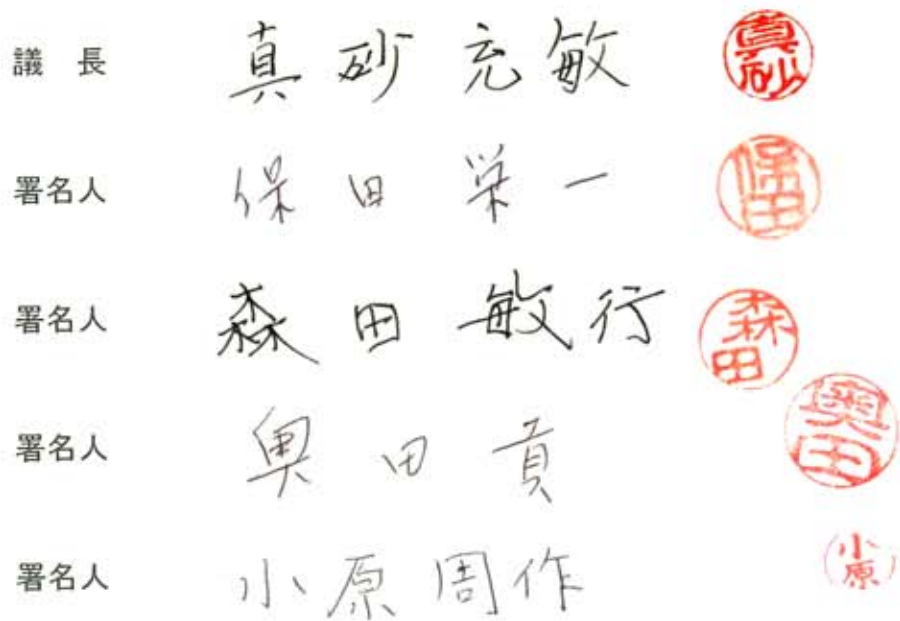 議長 真砂充敏 真砂
署名人 保田栄一 保田
署名人 森田敏行 森田
署名人 奥田貢 奥田
署名人 小原周作 小原